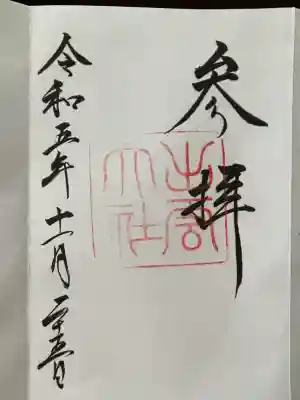 参拝
出雲
大社
令和五年十一月二十五日